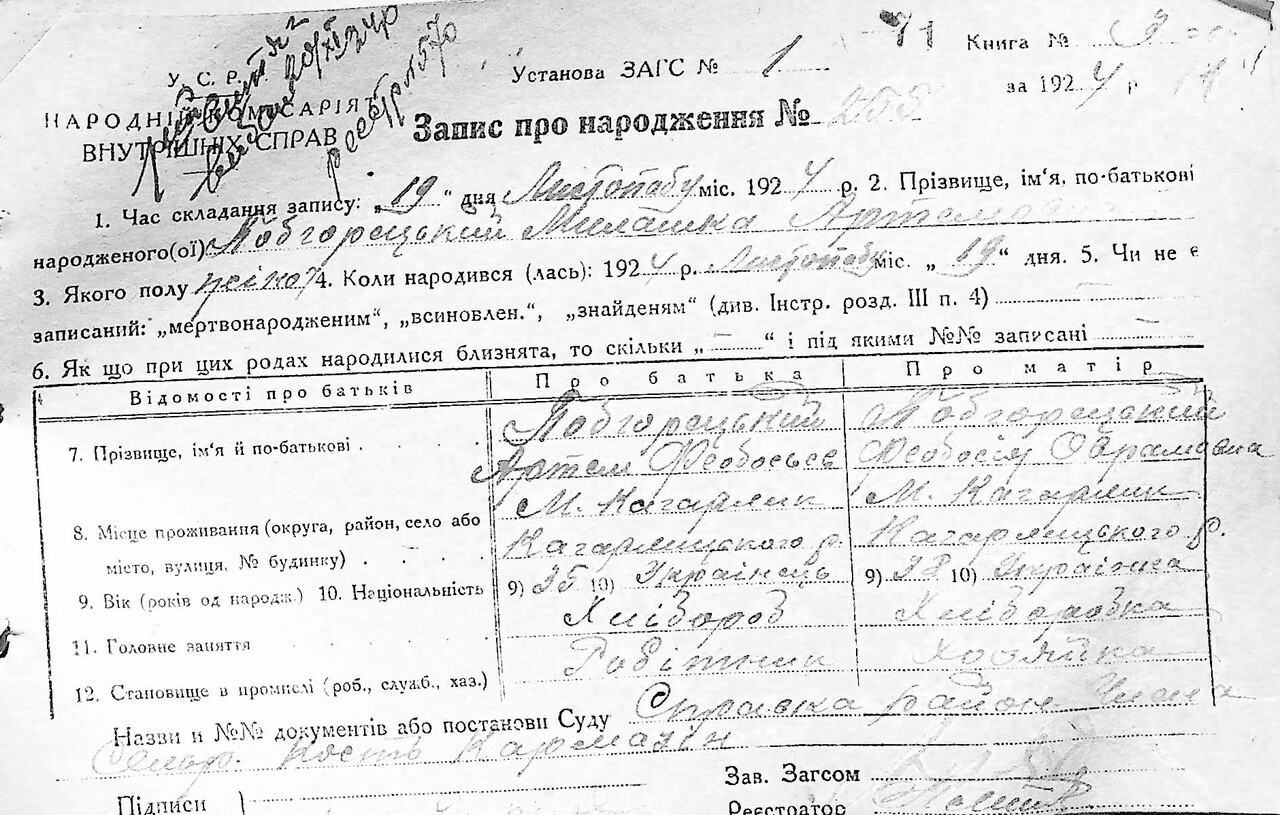 У. С. Р.
НАРОДНІЙ КОМІСАРІЯТ
ВНУТРІШНІХ СПРАВ
20/XI 24 р
Установа ЗАГС № 1
Книга № 3
за 1924 р
Запис про народження № 255
1. Час складання запису: „19“ дня Листопаду міс. 1924 р. 2. Прізвище, ім'я, по-батькові
народженого(ої) Побгорецький
3. Якого полу 4. Коли народився (лась): 1924 р. Листопаду міс. „19“ дня. 5. Чи не є
записаний: „мертвонародженим“, „всиновлен.“, „знайденям“ (див. Інстр. розд. III п. 4)
6. Як що при цих родах народилися близнята, то скільки „—“ і під якими №№ записані —
Відомості про батьків
Про батька
Про матір
7. Прізвище, ім'я й по-батькові
Побгорецький
Артем Феобосьєв
Побгорецький
Феобосія Обрамовна
8. Місце проживання (округа, район, село або
місто, вулиця, № будинку)
М. Кагарлик
Кагарлицького р.
М. Кагарлик
Кагарлицького р.
9. Вік (років од народж.) 10. Національність
9) 35 10) Українець
9) 38 10) Українка
11. Головне заняття
Хлібороб
Хліборобка
12. Становище в промислі (роб., служб., хаз.)
Робітник
Хозяйка
Назви и №№ документів або постанови Суду Справка район
Кость Кармазін
Підписи
Зав. Загсом
Реєстратор